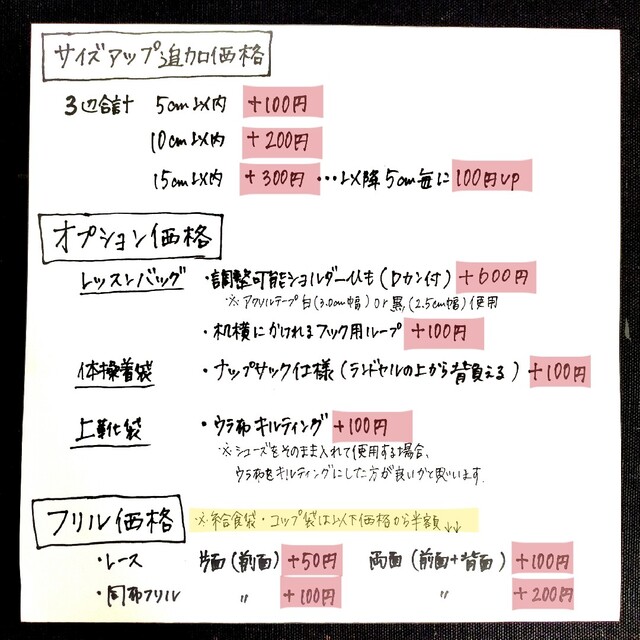 サイズアップ追加価格
3辺合計 5cm以内 +100円
10cm以内 +200円
15cm以内 +300円 …以降5cm毎に 100円up
オプション価格
レッスンバッグ ・調整可能ショルダーひも(Dカン付) +600円
※アクリルテープ 白(3.0cm幅) or 黒(2.5cm幅) 使用
・机横にかけれるフック用ループ +100円
体操着袋 ・ナップサック仕様(ランドセルの上から背負える) +100円
上靴袋 ・ウラ布キルティング +100円
※シューズをそのまま入れて使用する場合、
ウラ布をキルティングにした方が良いかと思います.
フリル価格 ※給食袋・コップ袋は以下価格から半額↓↓
・レース 片面(前面) +50円 両面(前面+背面) +100円
・同布フリル 〃 +100円 〃 +200円